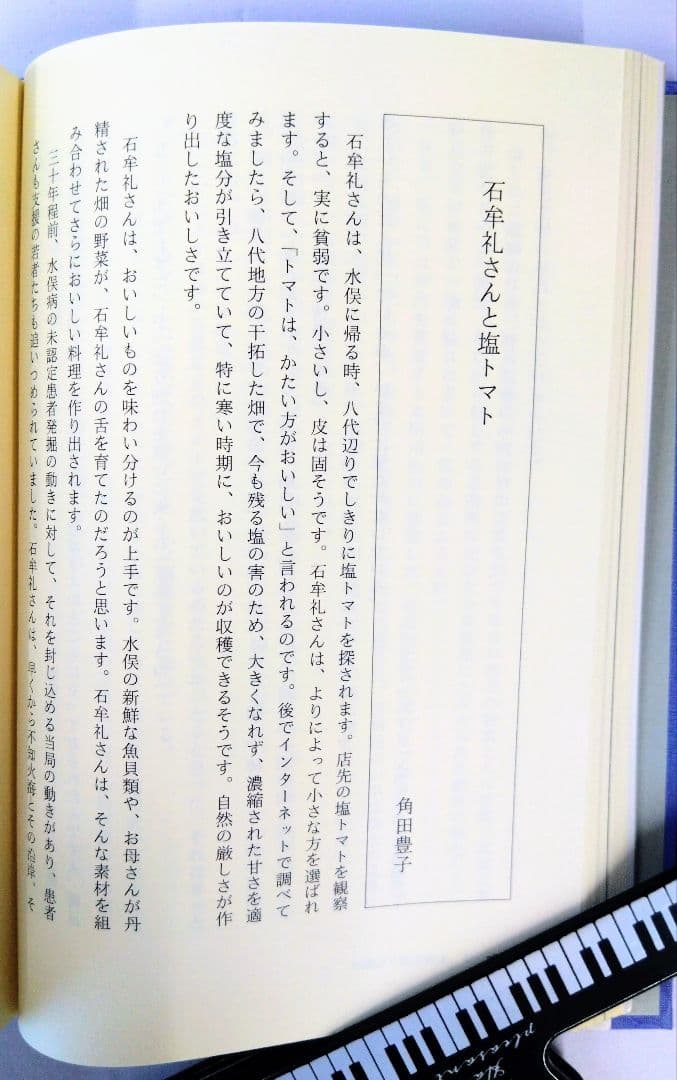 石牟礼さんと塩トマト
角田豊子
石牟礼さんは、水俣に帰る時、八代辺りでしきりに塩トマトを探されます。店先の塩トマトを観察
すると、実に貧弱です。小さいし、皮は固そうです。石牟礼さんは、よりによって小さな方を選ばれ
ます。そして、「トマトは、かたい方がおいしい」と言われるのです。後でインターネットで調べて
みましたら、八代地方の干拓した畑で、今も残る塩の害のため、大きくなれず、濃縮された甘さを適
度な塩分が引き立てていて、特に寒い時期に、おいしいのが収穫できるそうです。自然の厳しさが作
り出したおいしさです。
石牟礼さんは、おいしいものを味わい分けるのが上手です。水俣の新鮮な魚貝類や、お母さんが丹
精された畑の野菜が、石牟礼さんの舌を育てたのだろうと思います。石牟礼さんは、そんな素材を組
み合わせてさらにおいしい料理を作り出されます。
三十年程前、水俣病の未認定患者発掘の動きに対して、それを封じ込める当局の動きがあり、患者
さんも支援の若者たちも追いつめられていました。石牟礼さんは、早くから不知火海とその沿岸、そ
pleasant